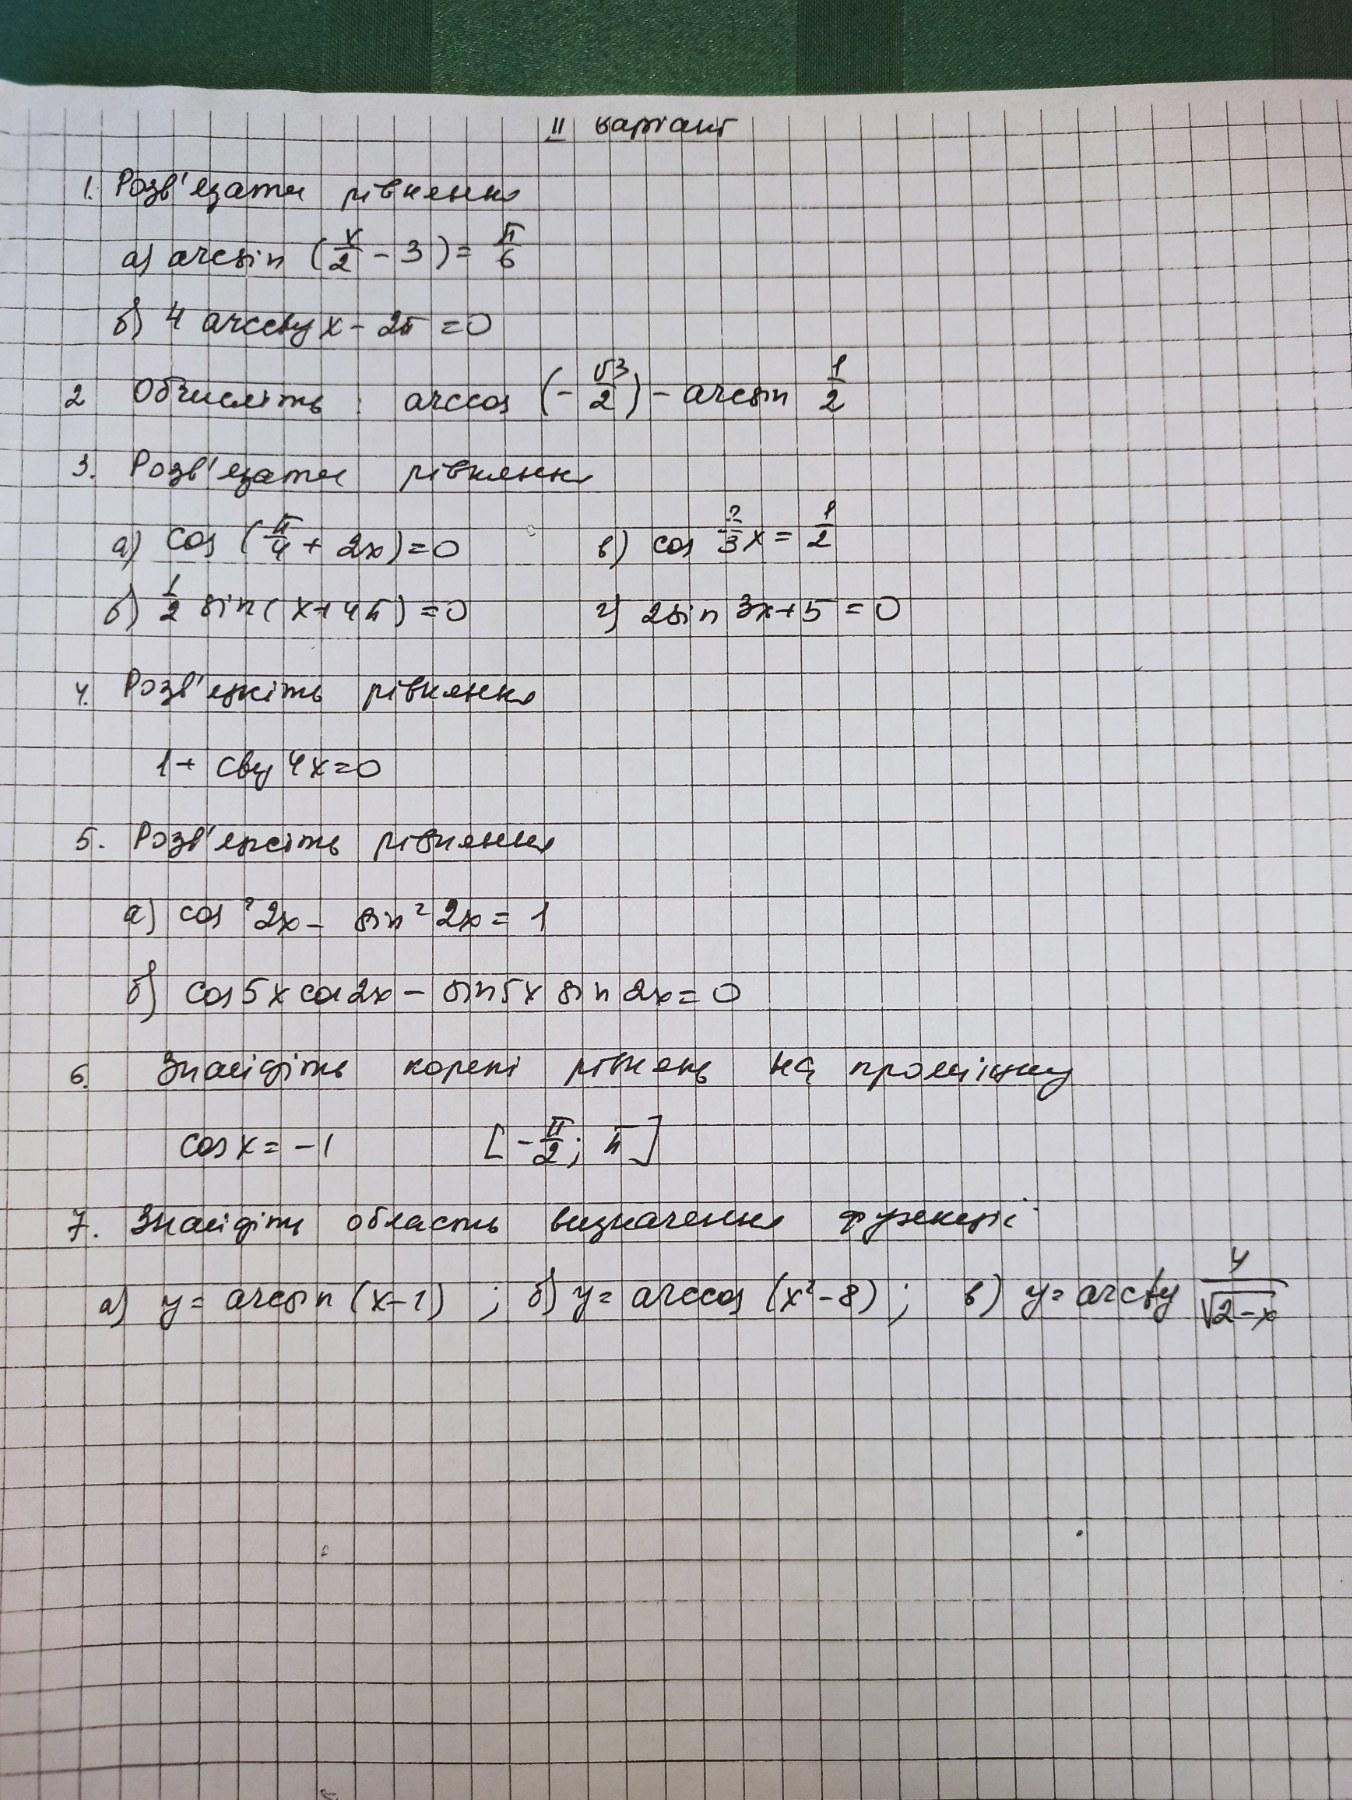 II варіант
1. Розв'язати рівняння
а) arcsin (x/2 - 3) = π/6
б) 4 arcctg x - 2π = 0
2 Обчисліть : arccos (-√3/2) - arcsin 1/2
3. Розв'язати рівняння
а) cos (π/4 + 2x) = 0 в) cos 2/3 x = 1/2
б) 1/2 sin (x + 4π) = 0 г) 2 sin 3x + 5 = 0
4. Розв'яжіть рівняння
1 + ctg 4x = 0
5. Розв'яжіть рівняння
а) cos² 2x - sin² 2x = 1
б) cos 5x cos 2x - sin 5x sin 2x = 0
6. Знайдіть корені рівнянь на проміжку
cos x = -1 [-π/2; π]
7. Знайдіть область визначення функції
а) y = arcsin (x-1) ; б) y = arccos (x²-8) ; в) y = arcctg 4/√(2-x)